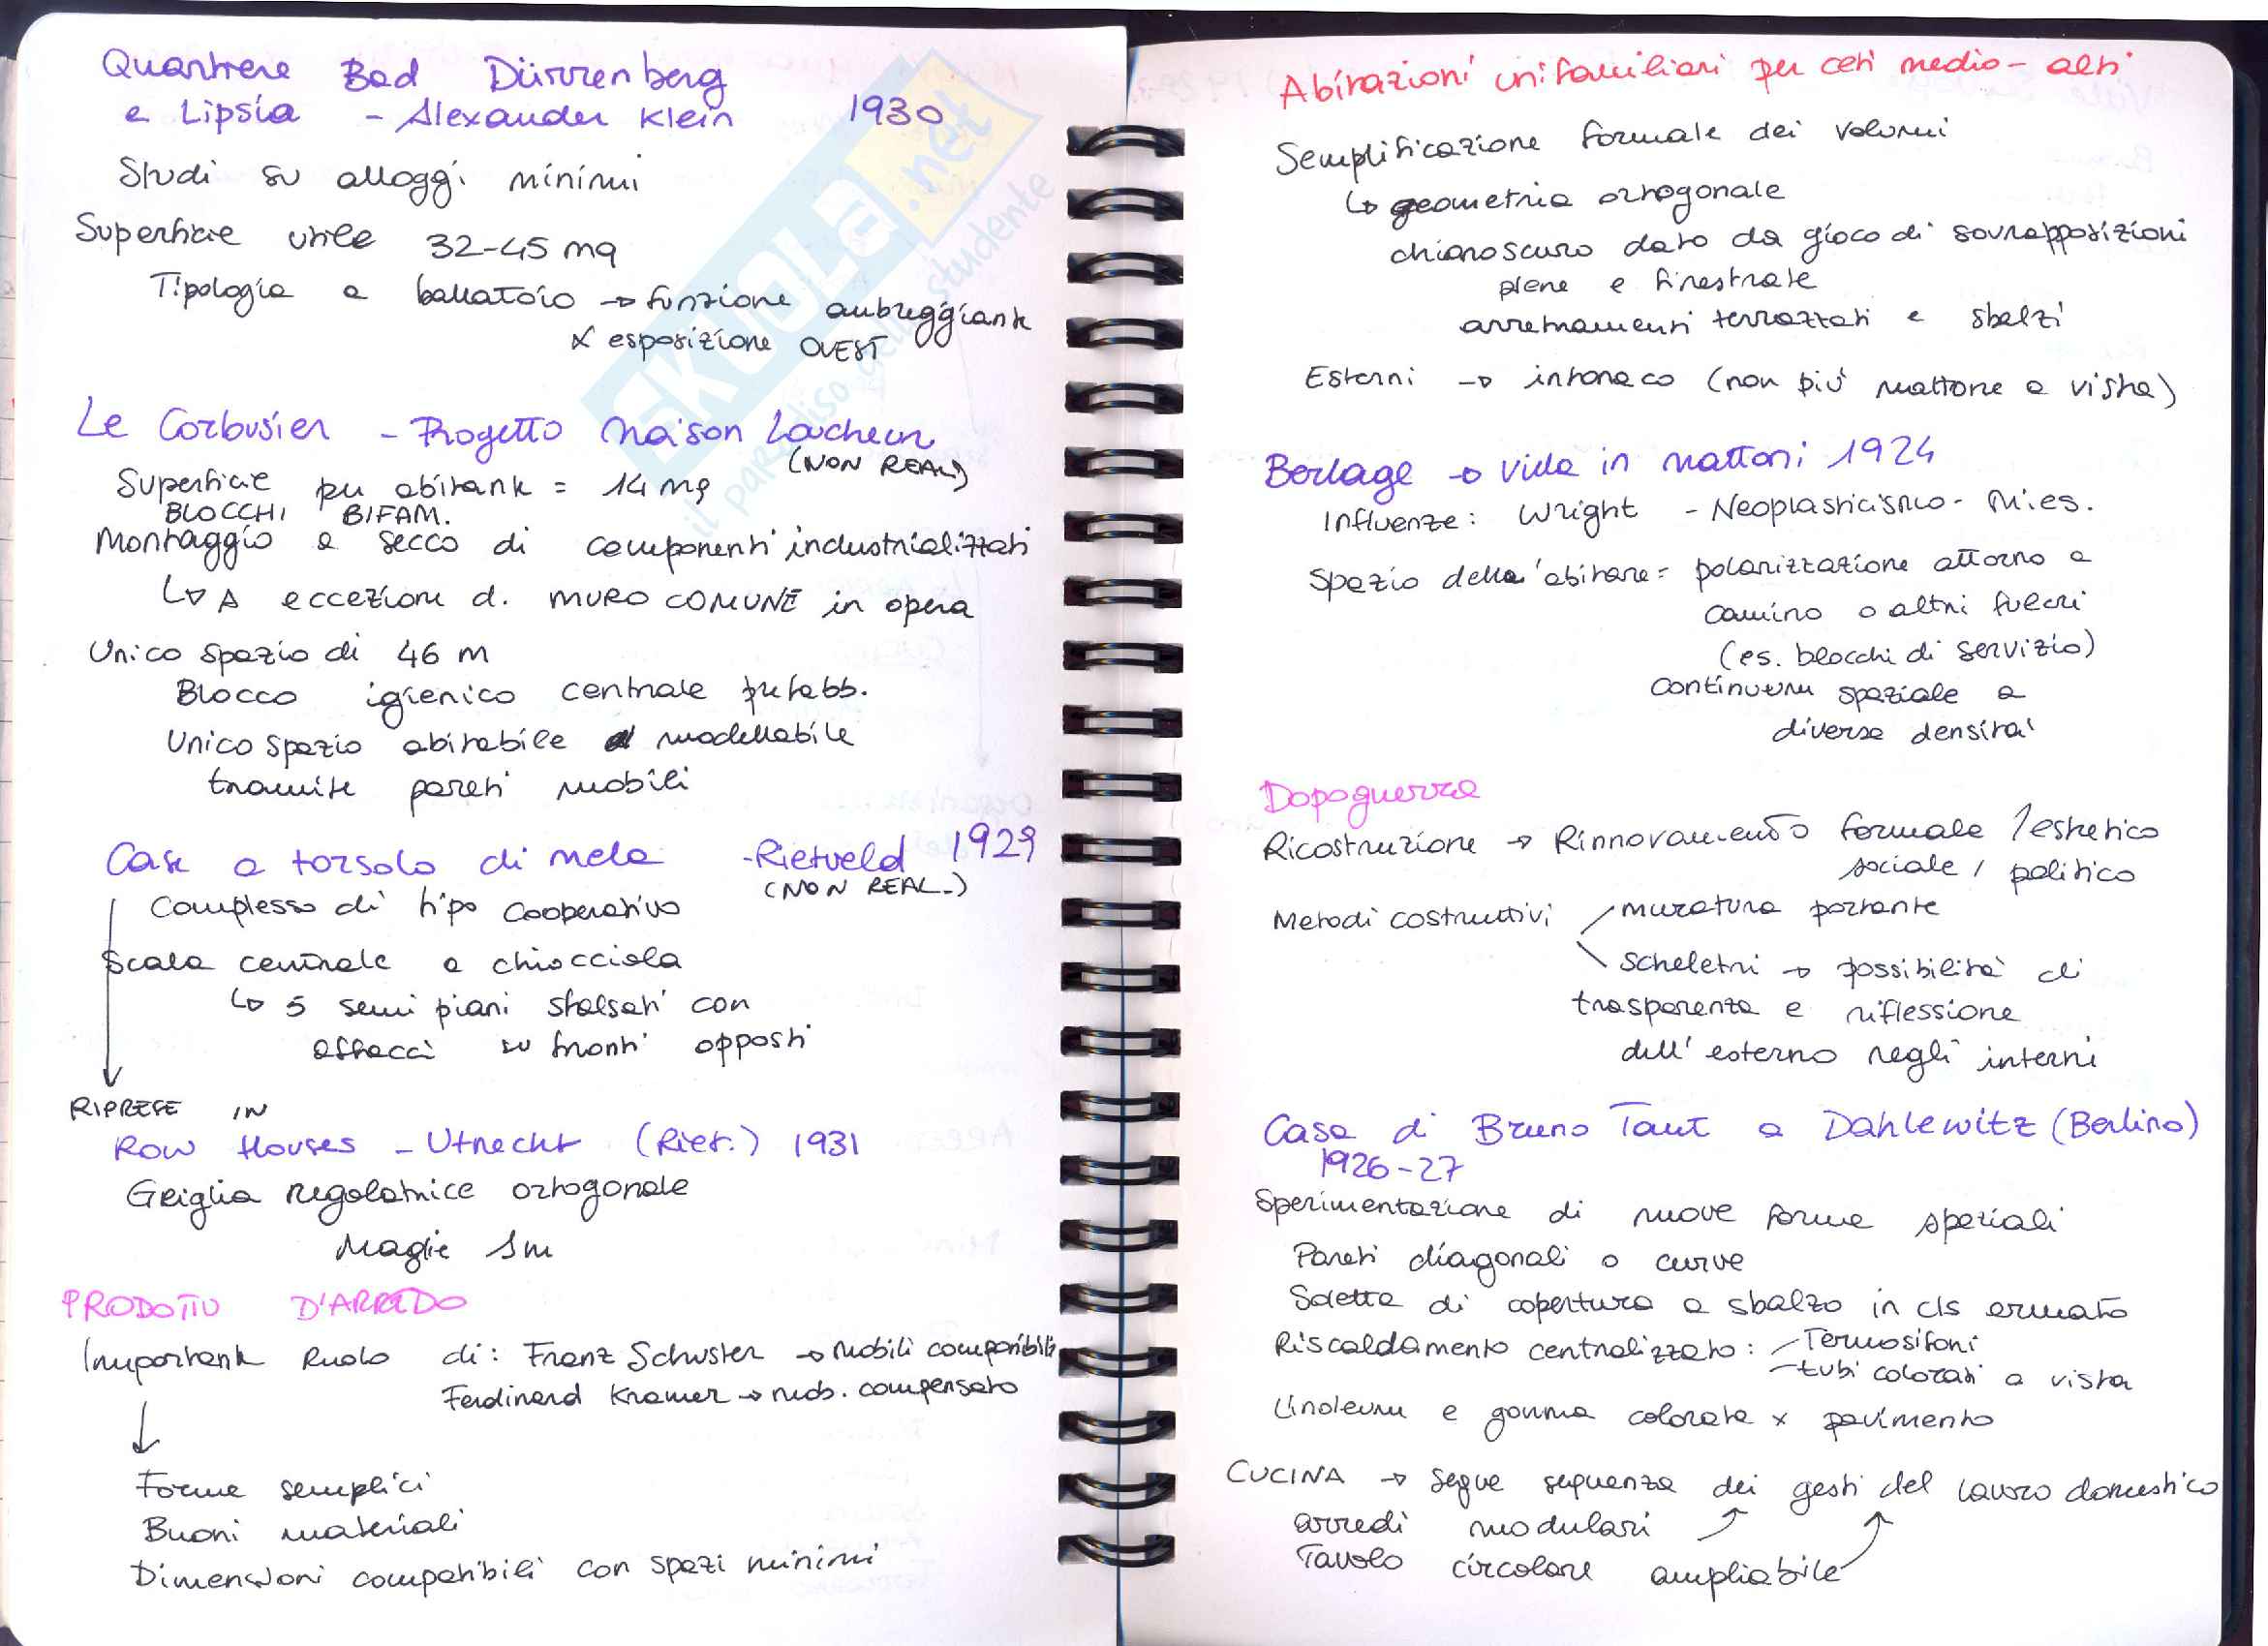 Quartiere Bad Dürrenberg
e Lipsia - Alexander Klein 1930
Studi su alloggi minimi
Superficie utile 32-45 mq
Tipologia a ballatoio → funzione aubreggiante
x esposizione OVEST
Le Corbusier - Progetto Maison Loucheur
(NON REAL.)
Superficie per abitante = 14 mq
BLOCCHI BIFAM.
Montaggio a secco di componenti industrializzati
↳ A eccezione di MURO COMUNE in opera
Unico spazio di 46 m
Blocco igienico centrale prefabb.
Unico spazio abitabile modellabile
tramite pareti mobili
Case a torsolo di mela - Rietveld 1929
(NON REAL.)
Complesso di tipo cooperativo
Scala centrale a chiocciola
↳ 5 semi piani sfalsati con
affacci su fronti opposti
RIPRESE IN
Row Houses - Utrecht (Riet.) 1931
Griglia regolatrice ortogonale
Maglie 1m
PRODOTTI D'ARREDO
Importante Ruolo di: Franz Schuster → mobili componibili
Ferdinand Kramer → mob. compensato
↓
Forme semplici
Buoni materiali
Dimensioni compatibili con spazi minimi
SKUOLA.net
il paradiso dello studente
Abitazioni unifamiliari per ceti medio-alti
Semplificazione formale dei volumi
↳ geometria ortogonale
chiaroscuro dato da gioco di sovrapposizioni
piene e finestrate
arretramenti terrazzati e sbalzi
Esterni → intonaco (non più mattone a vista)
Berlage → Villa in mattoni 1924
Influenze: Wright - Neoplasticismo - Mies.
Spazio dell'abitare = polarizzazione attorno a
camino o altri fulcri
(es. blocchi di servizio)
continuum spaziale a
diversa densità
Dopoguerra
Ricostruzione → Rinnovamento formale / estetico
sociale / politico
Metodi costruttivi muratura portante
scheletri → possibilità di
trasparenza e riflessione
dell'esterno negli interni
Casa di Bruno Taut a Dahlewitz (Berlino)
1926-27
Sperimentazione di nuove forme spaziali
Pareti diagonali o curve
Soletta di copertura a sbalzo in cls armato
Riscaldamento centralizzato: - Termosifoni
- tubi colorati a vista
Linoleum e gomma colorata x pavimento
CUCINA → segue sequenza dei gesti del lavoro domestico
arredi modulari
Tavolo circolare ampliabile